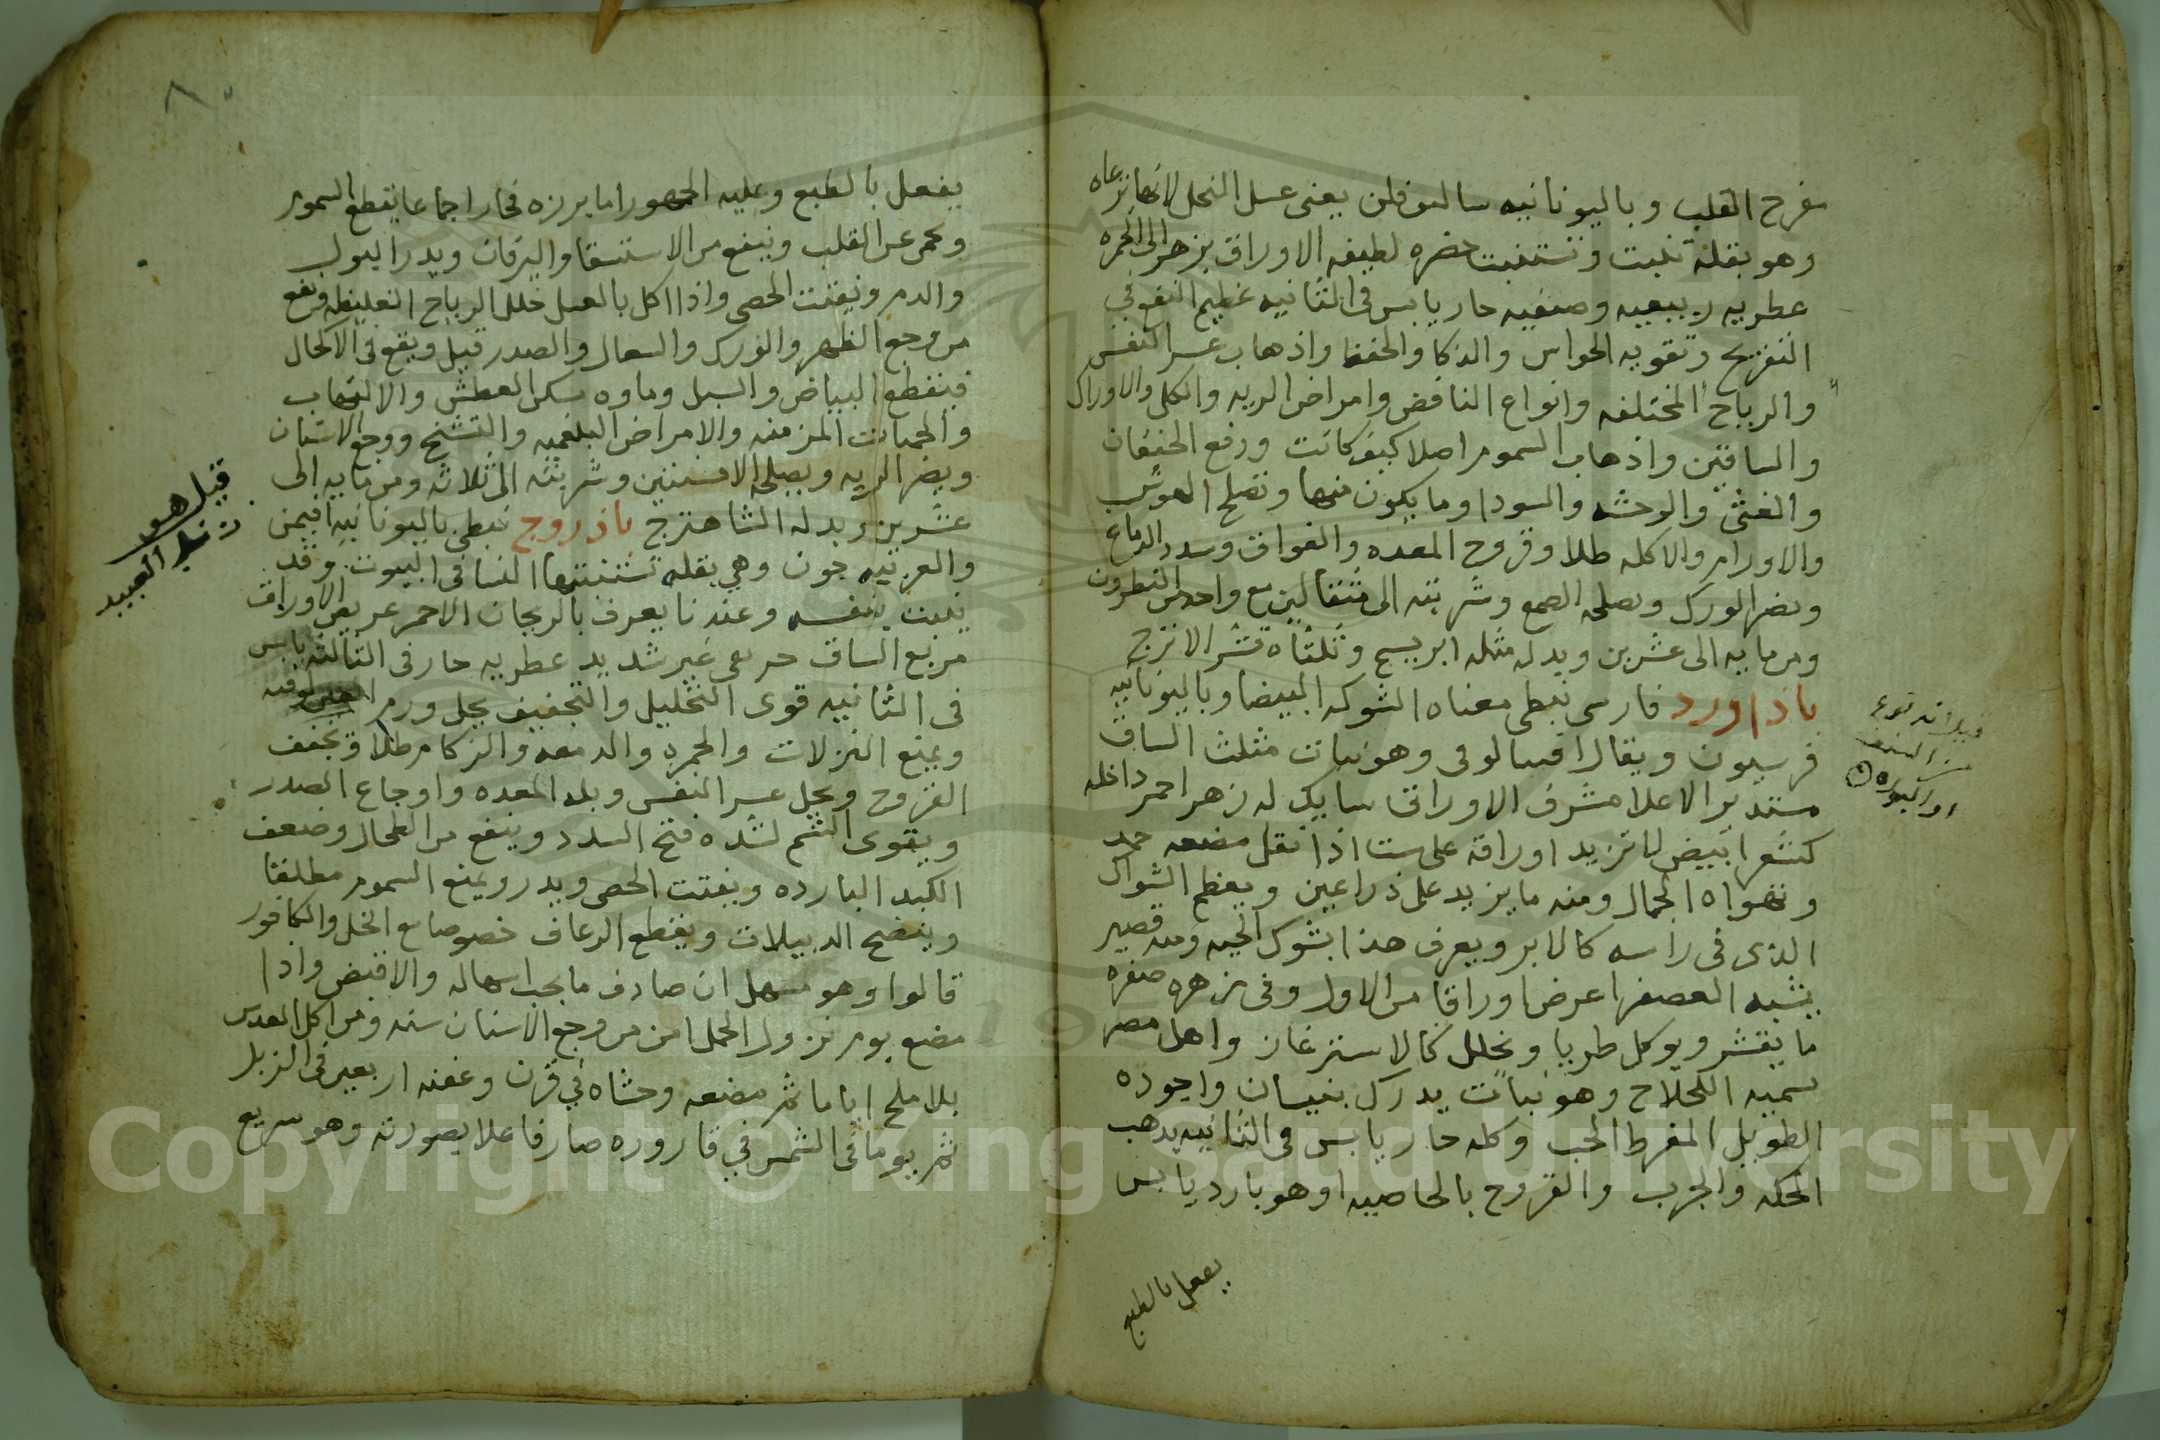 مفرح القلب وباليونانيه مالبوفلن يعنى عسل النحل لانها ترعاه
وهو بقلة تنبت وتستنبت خضره لطيفه الاوراق بزهر الى الحمره
عطريه ربيعيه وصيفيه حار يابس فى الثانيه عظيم النفع فى
التفريح وتقويه الحواس والذكا والحفظ واذهاب عسر النفس
والرياح المختلفه وانواع النافض وامراض الريه والكلى والاوراك
والساقين واذهاب السموم اصلا كيف كانت ودفع الخفقان
والغشى والوحشه والسودا وما يكون منها وتصلح الهوش
والاورام والاكله طلا وقروح المعده والفواق وسدد الدماغ
ويضر الورك ويصلحه الصمغ وشربته الى مثقالين مع واحد من النطرون
ومن مايه الى عشرين وبدله مثله ابريسم وثلثاه قشر الاترج
باذاورد فارسى نبطى معناه الشوكه البيضا وباليونانيه
فرسيون ويقال اقسالوقى وهو نبات مثلث الساق
مستدير الاعلا مشرف الاوراق شايك له زهر احمر داخله
كشعر ابيض لا تزيد اوراقه على ست اذا تفل مضغه جمد
وتهواه الجمال ومنه ما يزيد على ذراعين ويعظم الشوك
الذى فى راسه كالابر ويعرف هذا بشوك الحيه ومنه قصير
يشبه العصفر اعرض اوراقا من الاول وفى زهره صفره
ما يقشر ويوكل طريا ويخلل كالاسترغاز واهل مصر
تسميه اللحلاح وهو نبات يدرك بنيسان واجوده
الطويل المفرط الحب وكله حار يابس فى الثانيه يذهب
الحكه والجرب والقروح بالخاصيه او هو بارد يابس
يفعل بالطبع
قيل انه نوع
من
او الكبوره
٨٠
يفعل بالطبع وعليه الجمهور اما بزره فحار اجماعا يقطع السموم
ويحمى عن القلب وينفع من الاستسقا واليرقان ويدر البول
والدم ويفتت الحصى واذا اكل بالعسل حلل الرياح الغليظه ونفع
من وجع الظهر والورك والسعال والصدر قيل ويقع فى الاكحال
فيقطع البياض والسبل وماوه يسكن العطش والالتهاب
والحميات المزمنه والامراض البلغميه والتشنج ووجع الاسنان
ويضر الريه ويصلحه الافسنتين وشربته الى ثلاثه ومن مايه الى
عشرين وبدله الشاهترج باذروج نبطى باليونانيه اقيمن
والعربيه جون وهى بقله تستنبتها النسا فى البيوت وقد
ينبت بنفسه وعندنا يعرف بالريحان الاحمر عريض الاوراق
مربع الساق حريف غير شديد عطريه حار فى الثالثه يابس
فى الثانيه قوى التحليل والتجفيف يحل ورم العين لوقته
ويمنع النزلات والحمره والدمعه والزكام طلا ويجفف
القروح ويحل عسر النفس وبله المعده واوجاع الصدر
ويقوى الشم لشده فتح السدد وينفع من الطحال وضعف
الكبد البارده ويفتت الحصى ويدر ويمنع السموم مطلقا
وينضج الدبيلات ويقطع الرعاف خصوصا مع الخل والكافور
قالوا وهو مسهل ان صادف ما يجب اسهاله والا قبض واذا
مضغ يوم نزول الحمل امن من وجع الاسنان سنه ومن اكل العدس
بلا ملح اياما ثم مضغه وحشاه فى قرن وعفنه اربعين فى الزبل
ثم يوما فى الشمس فى قاروره صار فاعلا بصورته وهو سريع
قيل هو
زنجبر العبيد
Copyright © King Saud University